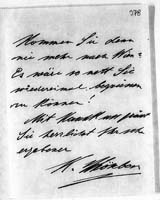 378
Kommen Sie denn
nie mehr nach Wien?
Es wäre so nett Sie
wiedereinmal begrüssen
zu können!
Mit Handkuss
Sie herzlichst Ihr sehr
ergebener